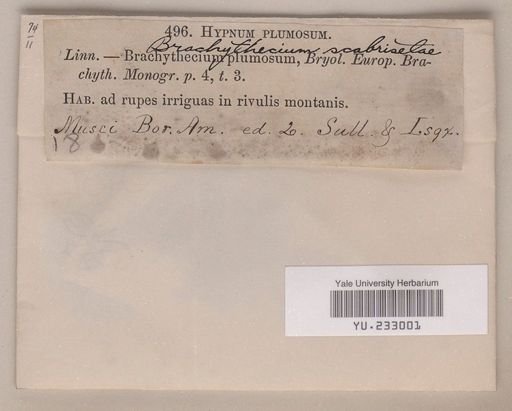 74
11
496. HYPNUM PLUMOSUM.
Brachythecium scabrisetae
Linn. — Brachythecium plumosum, Bryol. Europ. Bra-
chyth. Monogr. p. 4, t. 3.
HAB. ad rupes irriguas in rivulis montanis.
Musci Bor. Am. ed. 2. Sull. & Lsqx.
18
Yale University Herbarium
YU.233001